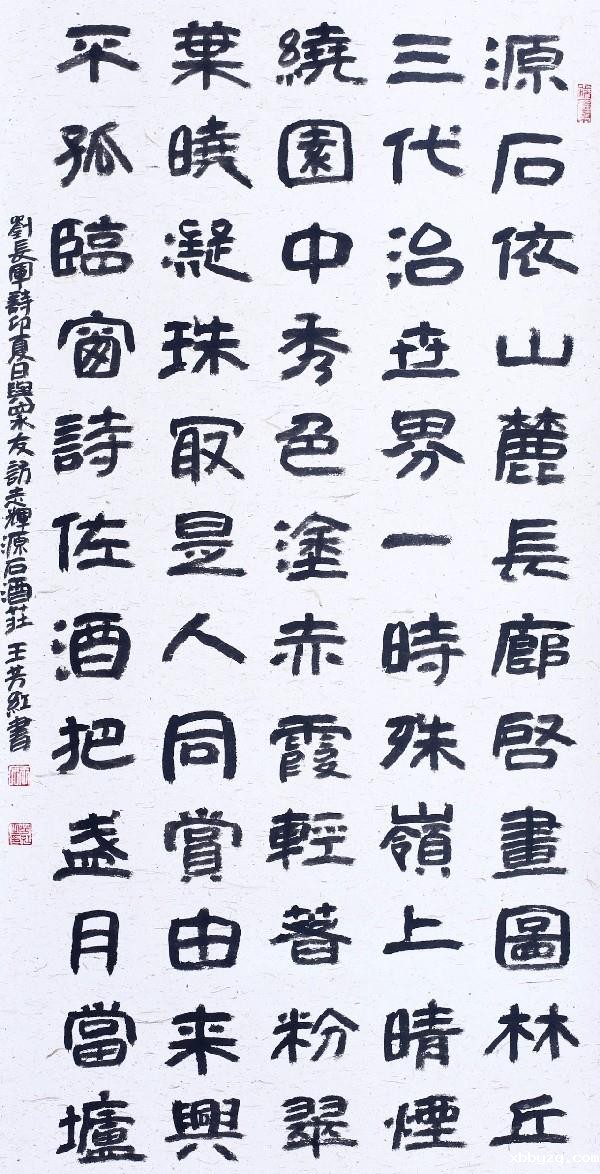 源石依山麓長廊启畫圖林丘
三代治世界一時殊嶺上晴煙
繞園中秀色塗赤霞輕著粉翠
葉曉凝珠冣是人同賞由来興
不孤臨窗詩佐酒把盞月當壚
劉長軍詩卯夏日與眾友訪志輝源石酒莊 王芳紅書